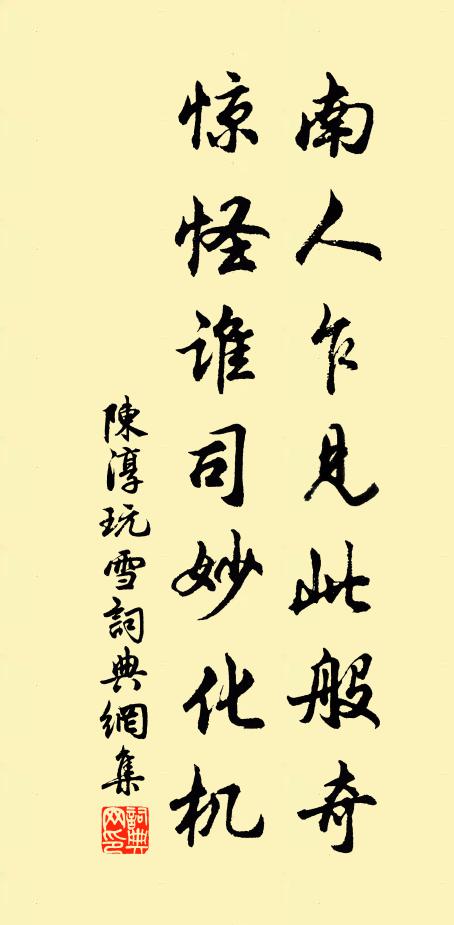 南人乍见此般奇
惊怪谁司妙化机
陳淳玩雪詞典網集
詞典网印